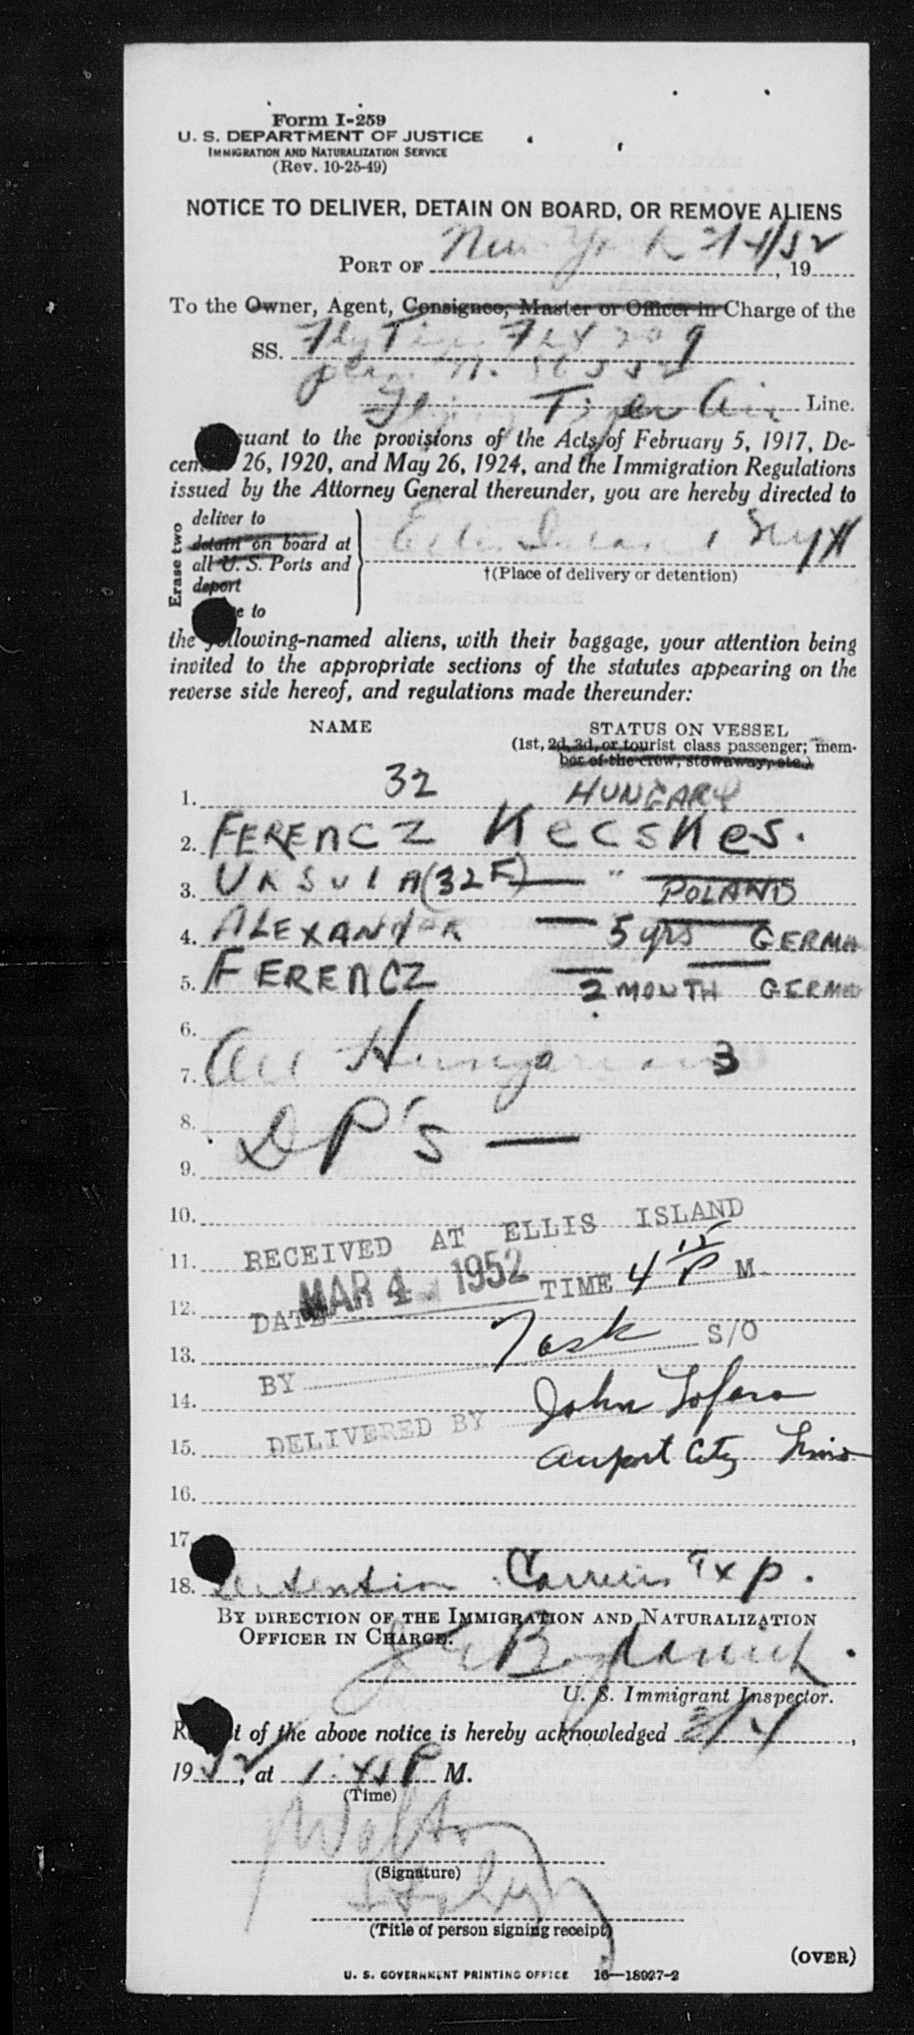 Form I-259
U. S. DEPARTMENT OF JUSTICE
IMMIGRATION AND NATURALIZATION SERVICE
(Rev. 10-25-49)
NOTICE TO DELIVER, DETAIN ON BOARD, OR REMOVE ALIENS
PORT OF New York 3/4/52, 19
To the Owner, Agent, Consignee, Master or Officer in Charge of the
SS.
Flying Tiger Air Line.
suant to the provisions of the Acts of February 5, 1917, De-
cem 26, 1920, and May 26, 1924, and the Immigration Regulations
issued by the Attorney General thereunder, you are hereby directed to
Erase two
deliver to
detain on board at
all U. S. Ports and
deport
e to
Ellis Island
†(Place of delivery or detention)
the following-named aliens, with their baggage, your attention being
invited to the appropriate sections of the statutes appearing on the
reverse side hereof, and regulations made thereunder:
NAME STATUS ON VESSEL
(1st, 2d, 3d, or tourist class passenger; mem-
ber of the crew, stowaway, etc.)
1. 32 HUNGARY
2. FERENCZ KecsKes.
3. URSULA (32F) — " POLAND
4. ALEXANDER — 5 yrs GERMA
5. FERENCZ — 2 MONTH GERMA
6.
7. All Hungarian 3
8. DP's —
9.
10.
11. RECEIVED AT ELLIS ISLAND
12. DATE MAR 4 1952 TIME 4 15 P M
13. BY Task S/O
14. DELIVERED BY John Lofaro
15. Airport City Limo
16.
17.
18. Detention Carriers Exp.
BY DIRECTION OF THE IMMIGRATION AND NATURALIZATION
OFFICER IN CHARGE.
U. S. Immigrant Inspector.
R t of the above notice is hereby acknowledged 3/4,
1952, at 1:45 P M.
(Time)
(Signature)
(Title of person signing receipt)
(OVER)
U. S. GOVERNMENT PRINTING OFFICE 16—18027-2